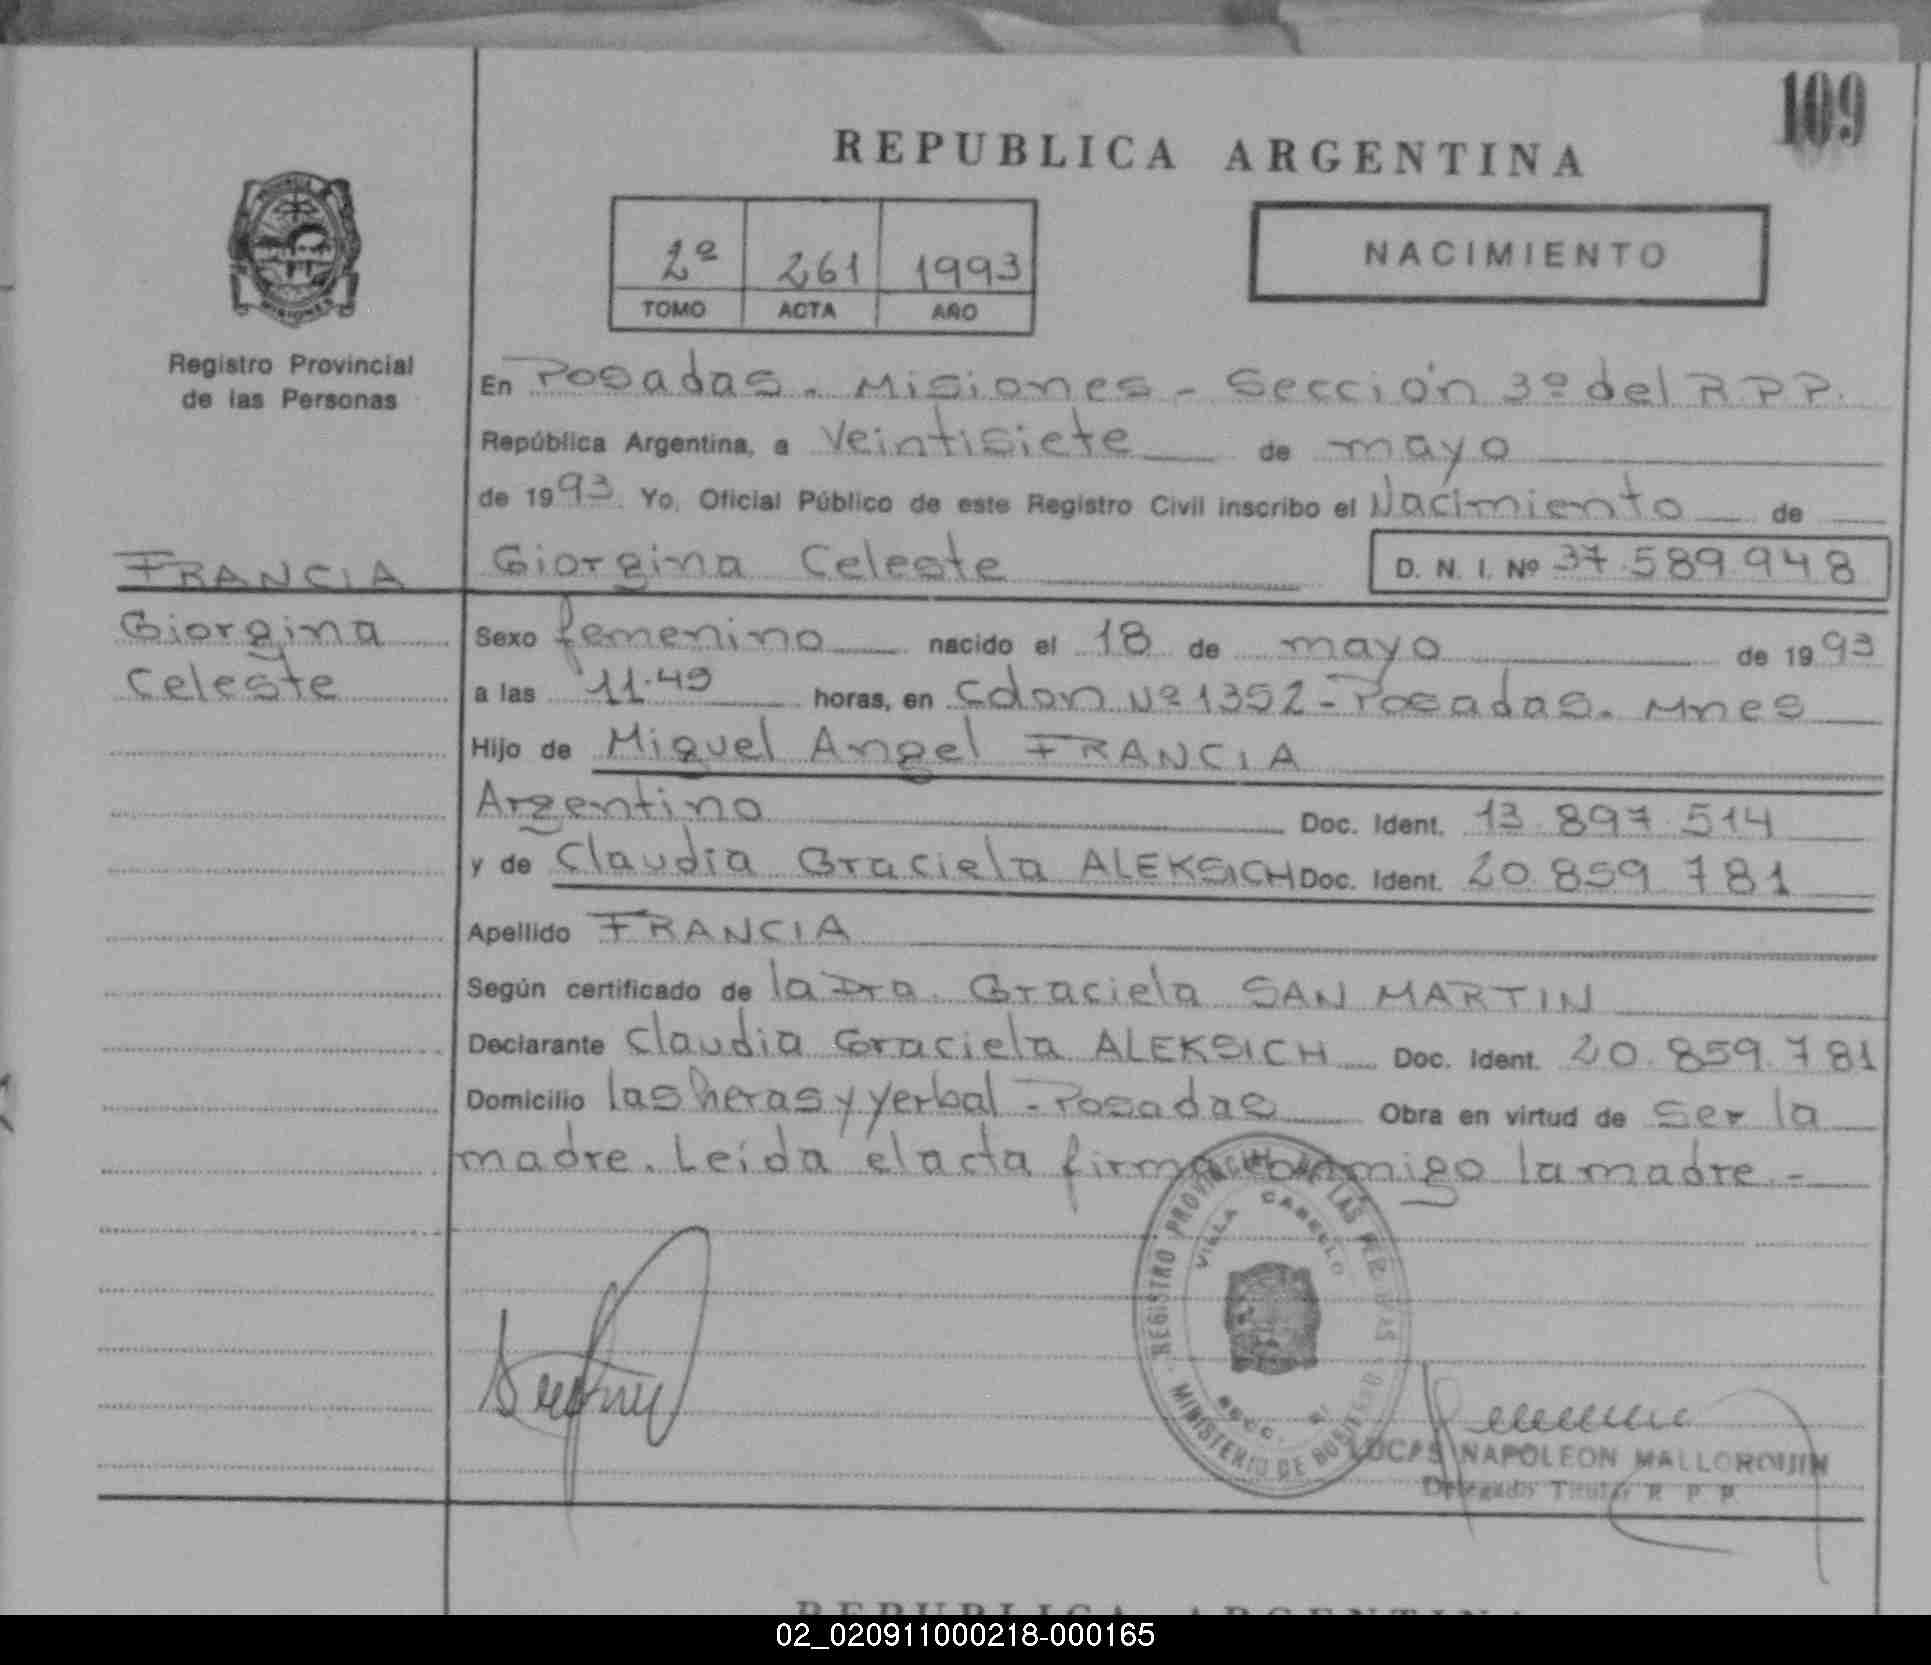 109
REPUBLICA ARGENTINA
2º 261 1993
TOMO ACTA AÑO
NACIMIENTO
MISIONES
Registro Provincial
de las Personas
En Posadas - Misiones - Sección 3º del R.P.P.
República Argentina, a Veintisiete de mayo
de 1993 Yo, Oficial Público de este Registro Civil inscribo el Nacimiento de
FRANCIA Giorgina Celeste D. N. I. Nº 37.589.948
Giorgina Sexo femenino nacido el 18 de mayo de 1993
Celeste a las 11.49 horas, en Cdon Nº 1352 - Posadas. Mnes
Hijo de Miguel Angel FRANCIA
Argentino Doc. Ident. 13.897.514
y de Claudia Graciela ALEKSICH Doc. Ident. 20.859.781
Apellido FRANCIA
Según certificado de la Dra. Graciela SAN MARTIN
Declarante Claudia Graciela ALEKSICH Doc. Ident. 20.859.781
Domicilio las heras y yerbal - Posadas Obra en virtud de ser la
madre. Leída el acta firma conmigo la madre.-
REGISTRO PROVINCIAL DE LAS PERSONAS
VILLA CABELLO
SECC.
MINISTERIO DE GOBIERNO
LUCAS NAPOLEON MALLORQUIN
Delegado Titular R. P. P.
REPUBLICA ARGENTINA
02_020911000218-000165